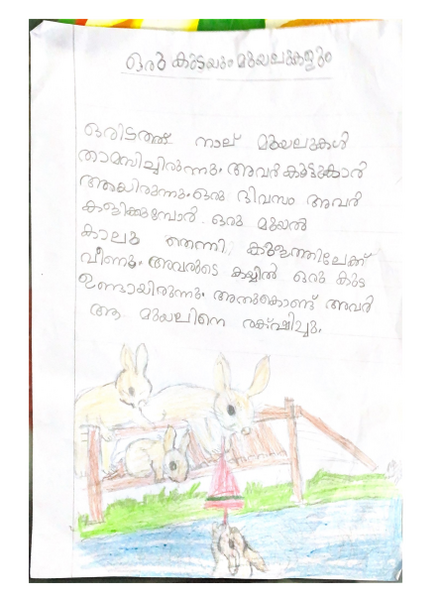 ഒരു കുടയും മുയലുകളും
ഒരിടത്ത് നാല് മുയലുകൾ
താമസിച്ചിരുന്നു. അവർ കൂട്ടുകാർ
ആയിരുന്നു. ഒരു ദിവസം അവർ
കളിക്കുമ്പോൾ ഒരു മുയൽ
കാലു തെന്നി, കുളത്തിലേക്ക്
വീണു. അവരുടെ കയ്യിൽ ഒരു കുട
ഉണ്ടായിരുന്നു. അതുകൊണ്ട് അവർ
ആ മുയലിനെ രക്ഷിച്ചു.